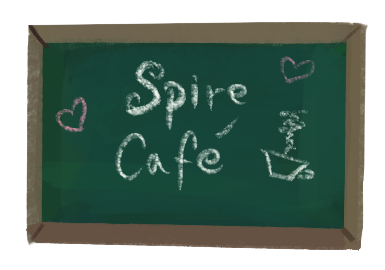 Spire
Café